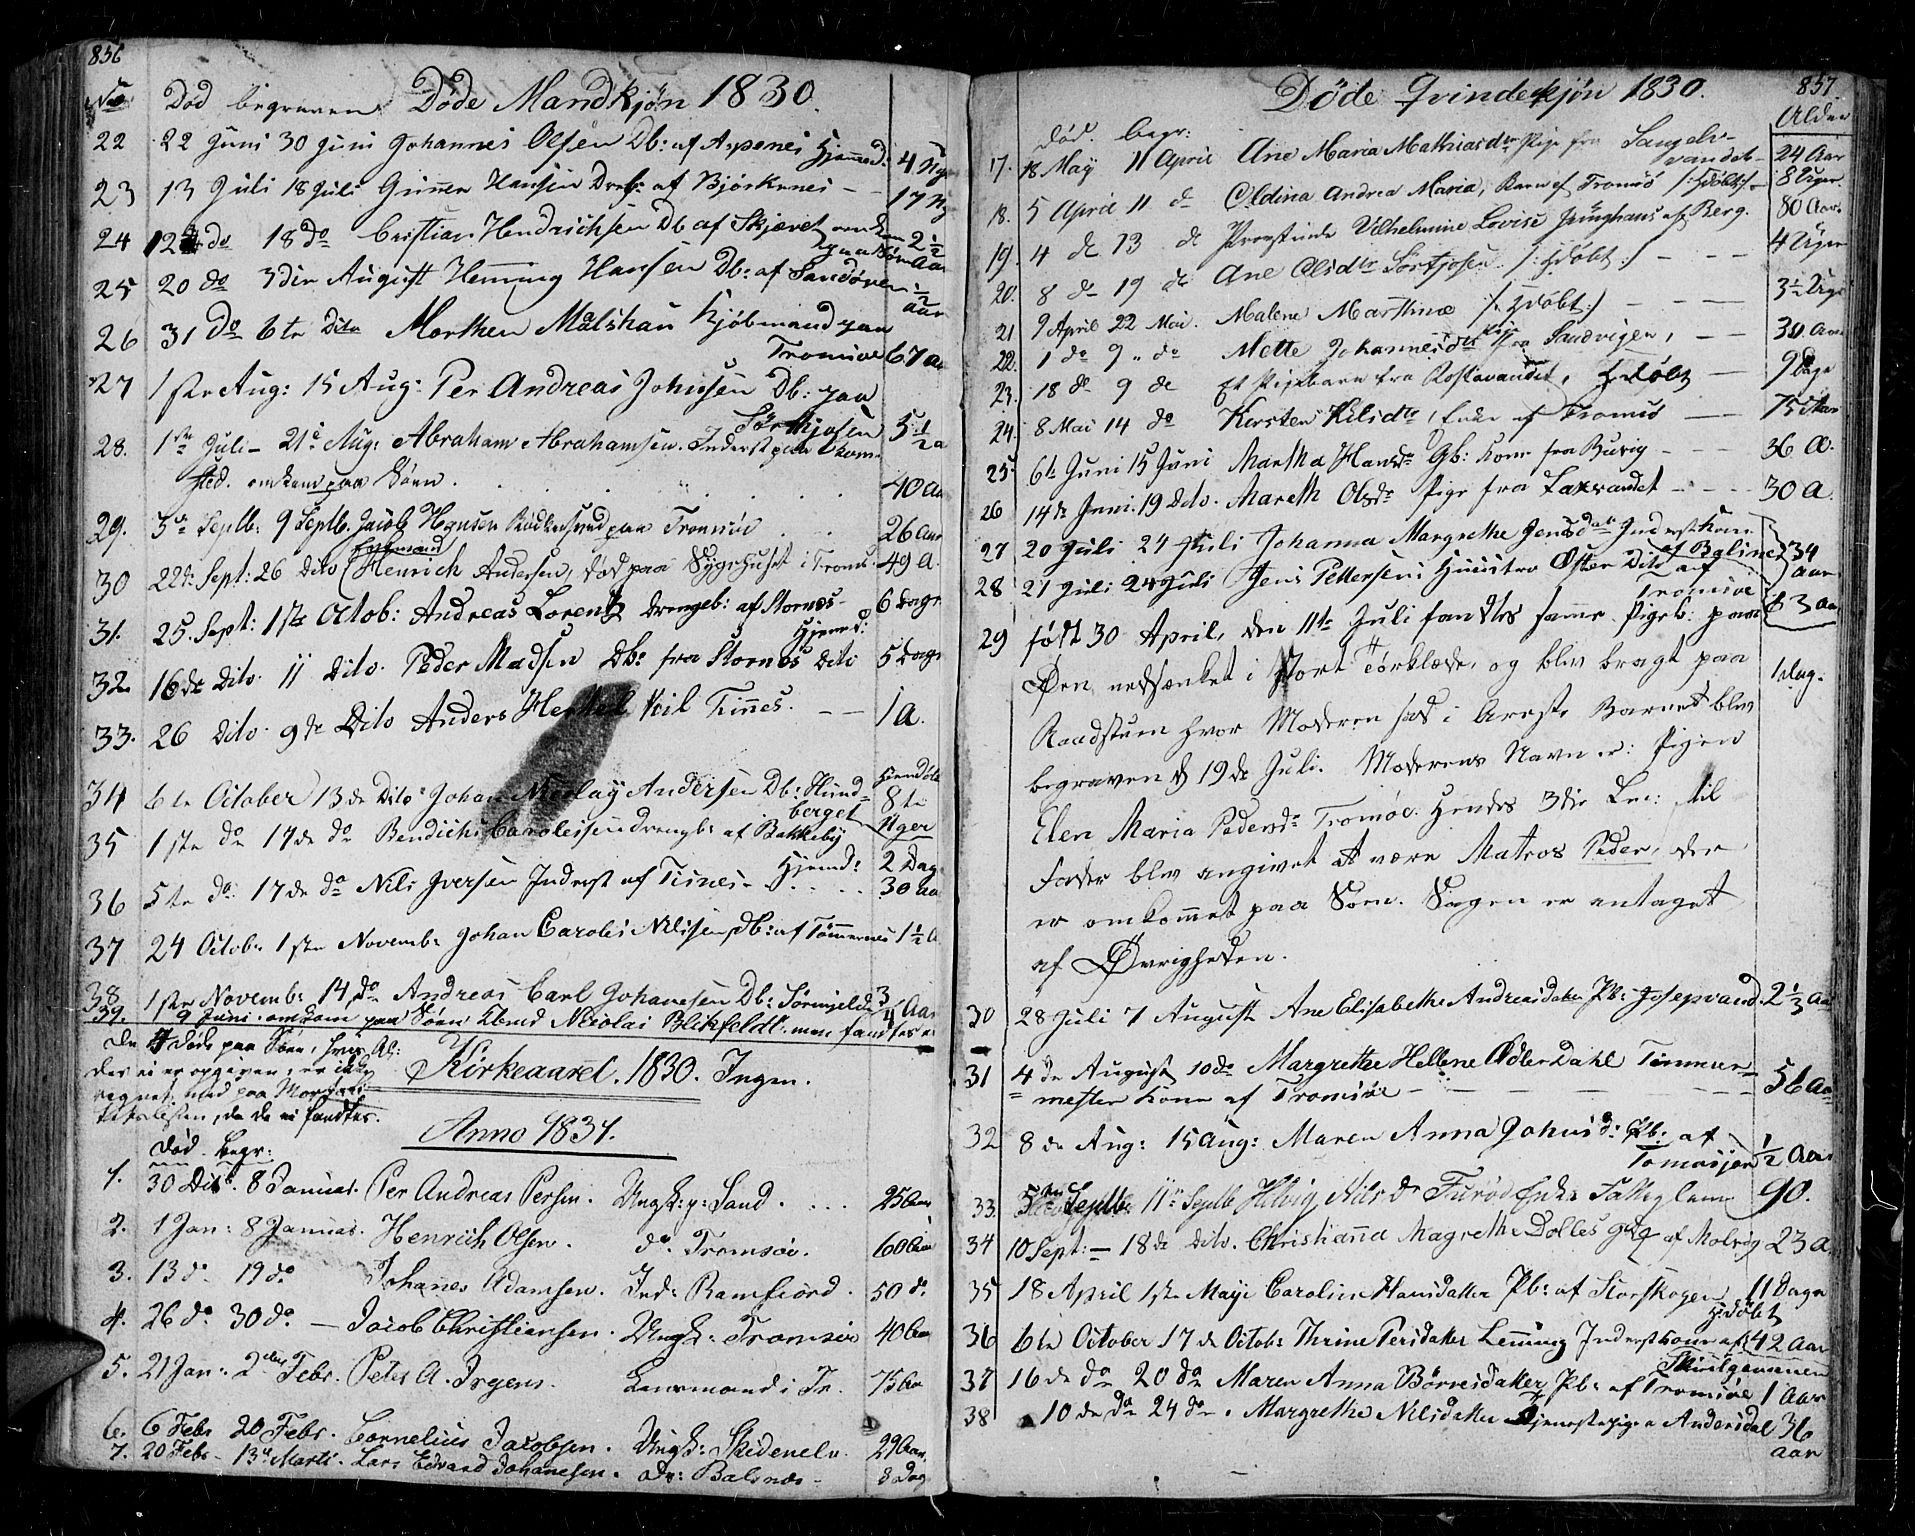 856
No Død begraven Døde Mandkjøn 1830.
22 22 Juni 30 Juni Johannes Olsen Db: af Aspenes Hjemmed: 4
23 13 Juli 18 Juli Hansen af Bjørkenes - - 17
24 12 do 18 do Cristian Hendrichsen Db af Skjævet omkom 2 1/2
25 20 do 3die August Hemming Hansen Db: af Sandøren 1/2 aar
26 31 do 6te Dito Morthen Malshau Kjøbmand paa
Tromsøe 67 a
27 1ste Aug: 15 Aug: Per Andreas Johnsen Db: paa
Sørkjosen 5 1/2 a
28. 1ste Juli - 21de Aug: Abraham Abrahamsen. Inderst paa
sted. omkom paa Søen. 40 Aa
29. 5te Septb: 9 Septb. Jacob Hansen paa Tromsøe 26 Aar
30 22de Sept: 26 Dito Henrich Andersen, død paa Sygehuset i Troms. 49 A.
31. 25. Sept: 1ste Octob: Andreas Lorentz Drengeb: af Stornæs - 6 Dage
Hjemd:
32 16de Dito. 11 Dito. Peder Madsen Db: fra Stornæs Dito 5 Dage
33. 26 Dito. 9de Dito Anders Tisnes. - - 1 a.
34 6te October 13de Dito Johan Nicolay Andersen Db: Hund-
berget Hjemdøbt 8te Uger
35 1ste do 17de do Bendichs Carolissen Drengb: af Bakkeby
Hjemd: 2 Dag
36 5te do: 17de do Nils Iversen Inderst af Tisnes - 30 Aa
37 24 Octob: 1ste Novemb: Johan Caroles Nilsen, Db: af Tømmernes 1 1/2 A
38 1ste Novemb: 14 do Andreas Carl Johanesen Db: Sørmjelde 3/4 Aar
39. 9 Juni omkom paa Søen Nicolai Blikfeldt. men fandtes ei
De 7 døde paa Søen, hvis Al:
der ei er opgiven, er ikke
regnet med paa
listen, da de ei fandtes.
Kirkeaaret. 1830. Ingen.
Anno 1831.
Død. Begr:
1. 30 Dec. 8 Januar. Per Andreas Persen. Ungk: p: Sand. ... 25 Aar
2. 1 Jan: 8 Januar. Henrich Olsen. do. Tromsøe. 60 Aar
3. 13 do. 19 do. Johanes Adamsen. Ind: Ramfiord. 50 do.
4. 26 do 30 do. - Jacob Christiansen. Ungk: Tromsøe 40 Aar
5. 21 Jan: 2den Febr. Peter A. Irgens. Lensmand i Tr. 75 Aar
6. 6 Febr 20 Febr. Cornelius Jacobsen. Ungk: Skedenelv. 29 Aar
7. 20 Febr - 13de Marti. Lars Edvard Johanesen. do: Balsnæs - 8 Dag
857
Døde Qvindekjøn 1830.
Død. begr: Alder
17. 18 May 11 April Ane Maria Mathiasdtr Pige fra Sangels-
vandet - 24 Aar
18. 5 April 11 do Oldina Andrea Maria, Barn af Tromsø /: Hdøbt :/ 8 Uger.
19. 4 do 13 do Provstinde Vilhelmine Lovise Junghans af Berg. 80 Aar.
20. 8 do 19 do Ane Olsdtr Sørkjosen. /: Hdøbt :/ - - - 4 Uger
21 9 April 22 Mai. Malene Marthine /: Hdøbt :/ - - - 3 1/2 Uge
22. 1 do 9 do Mette Johannesdtr Pige fra Sandvigen, - - 30 Aar
23. 18 do 9 do Et Pigebarn fra Rostavandet, Hdøbt - 9 Dage
24. 8 Mai 14 do Kirsten Nilsdtr, Enke af Tromsø - 75 Aar
25. 6te Juni 15 Juni Martha Hansdr Gb: Kone fra Buvig - - - 36 A.
26 14de Juni. 19 Dito. Mareth Olsdr Pige fra Laxvandet - - - 30 A.
27 20 Juli 24 Juli Johanna Margrethe Jensdatr Inderst Kone
af Balines 34 aar
28 21 Juli 24 Juli Jens Pettersens Huustru Dito af
Tromsøe 63 aar
29 født 30 April, den 11te Juli fandtes samme Pigeb: paa
Øen, nedsænket i et sort Tørklæde, og blev bragt paa 1 Dag.
Raadstuen hvor Moderen sad i Arrest. Barnet blev
begraven d 19de Juli. Moderens Navn er: Pigen
Elen Maria Pedersdr Tromsøe. Hendes 3die til
Fader blev angivet at være Matros Peder, der
er omkommet paa Søen. Sagen er antaget
af Øvrigheden.
30 28 Juli 7 August Ane Elisabethe Andreasdater Pb: Josepvand. 2 1/3 Aar
31 4de August 10 do Margrethe Hellene Adler Dahl Tømmer-
mester Kone af Tromsøe - - - 56 Aar
32 8de Aug: 15 Aug: Maren Anna Johnsd: Pb: af
Tomasjord 1/2 Aar
33 5te Septb: 11te Septb Helvig Nilsdr Enke 90.
34 10 Sept: - 18de Dito. Christianna Magrethe Dolles af Malvig 23 A
35 18 April 1ste Maji Carolin Hansdatter Pb: af Storskogen 11 Dage
Hdøbt
36 6te October 17de Octob: Thrine Persdater Lemming Inderst Kone af 42 Aar
Skuulgammen
37 16de do 20 do Maren Anna Børresdater Pb: af Tromsøe 1 Aar
38 10de do 24 do. Margrethe Nilsdater Tjenestepige Andersdal 36
aar